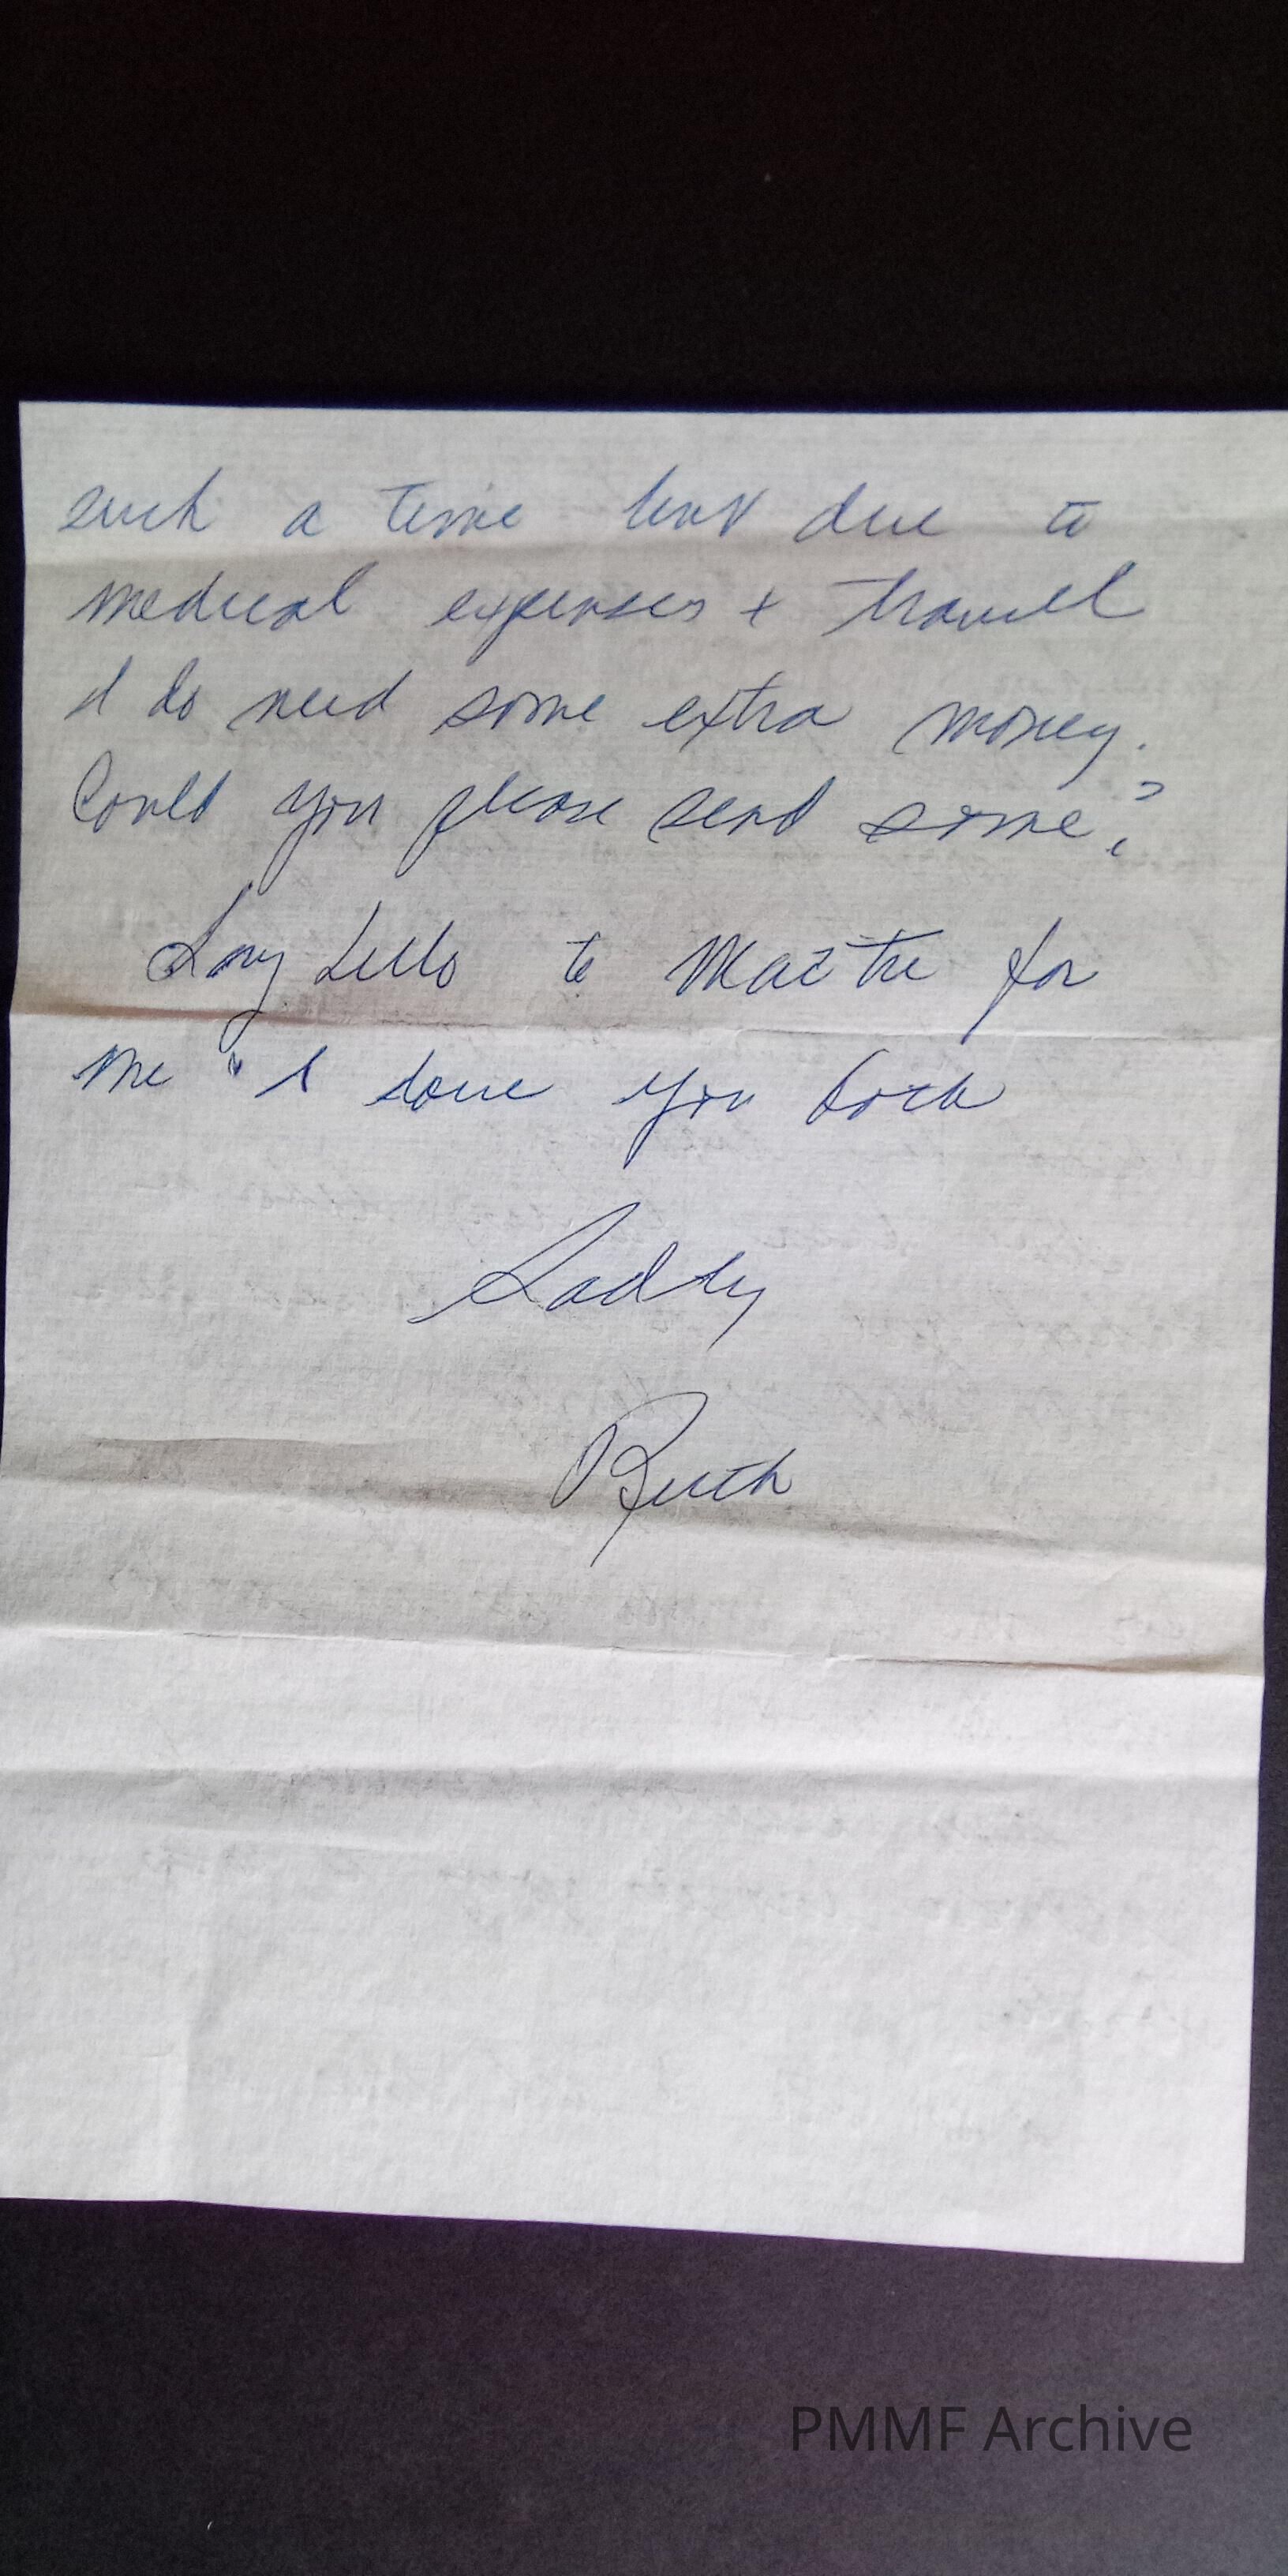 such a time but due to
medical expenses + travel
I do need some extra money.
Could you please send some?
Say hello to Mattie for
me " I love you both
Sadly
Ruth
PMMF Archive